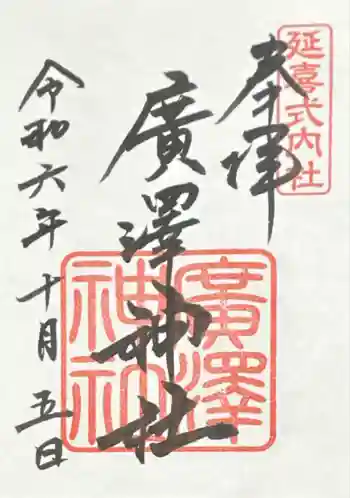 延喜式内社
奉拝
廣澤神社
廣澤神社
令和六年十月五日